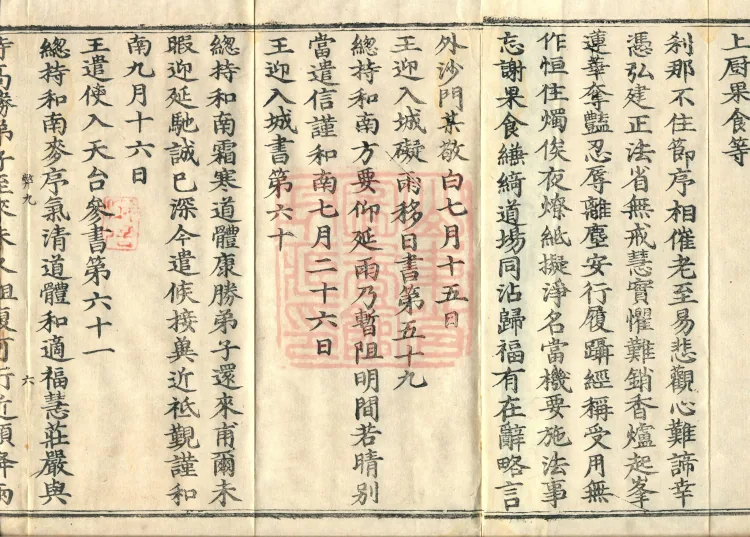 上厨果食等
刹那不住節序相催老至易悲觀心難諦幸
憑弘建正法省無戒慧實懼難銷香爐起峯
蓮華奪豔忍辱離塵安行履躡經稱受用無
作恒住燭俟夜燎紙擬淨名當機要施法事
忘謝果食繕綺道場同沾歸福有在辭略言
外沙門某敬白七月十五日
王迎入城礙雨移日書第五十九
總持和南方要仰延雨乃暫阻明間若晴別
當遣信謹和南七月二十六日
王迎入城書第六十
總持和南霜寒道體康勝弟子還來甫爾未
暇迎延馳誠已深今遣候接兾近祗覲謹和
南九月十六日
王遣使入天台參書第六十一
總持和南麥序氣清道體和適福慧莊嚴與
弊九
六